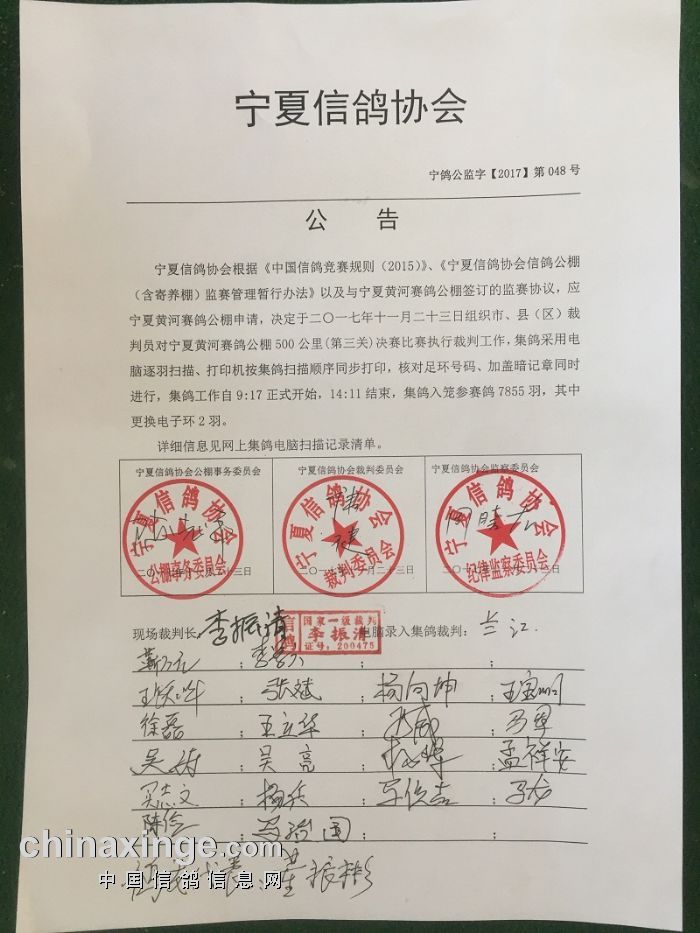 宁夏信鸽协会
宁鸽公监字【2017】第 048 号
公 告
宁夏信鸽协会根据《中国信鸽竞赛规则（2015）》、《宁夏信鸽协会信鸽公棚
（含寄养棚）监赛管理暂行办法》以及与宁夏黄河赛鸽公棚签订的监赛协议，应
宁夏黄河赛鸽公棚申请，决定于二〇一七年十一月二十三日组织市、县（区）裁
判员对宁夏黄河赛鸽公棚 500 公里(第三关)决赛比赛执行裁判工作，集鸽采用电
脑逐羽扫描、打印机按集鸽扫描顺序同步打印，核对足环号码、加盖暗记章同时
进行，集鸽工作自 9:17 正式开始，14:11 结束，集鸽入笼参赛鸽 7855 羽，其中
更换电子环 2 羽。
详细信息见网上集鸽电脑扫描记录清单。
宁夏信鸽协会公棚事务委员会 宁夏信鸽协会裁判委员会 宁夏信鸽协会监察委员会
宁夏信鸽协会 宁夏信鸽协会 宁夏信鸽协会
公棚事务委员会 裁判委员会 纪律监察委员会
现场裁判长 李振清 信鸽 国家一级裁判 李振清 证号：200475 电脑录入集鸽裁判：兰江
张斌 ； 杨向坤 ；
徐磊 ； 王立华 ；
吴涛 ； 吴亮 ； ； 孟祥安
杨兵 ；
陈俭 ； ；
chinaxinge.com
中国信鸽信息网
代表：董振彬